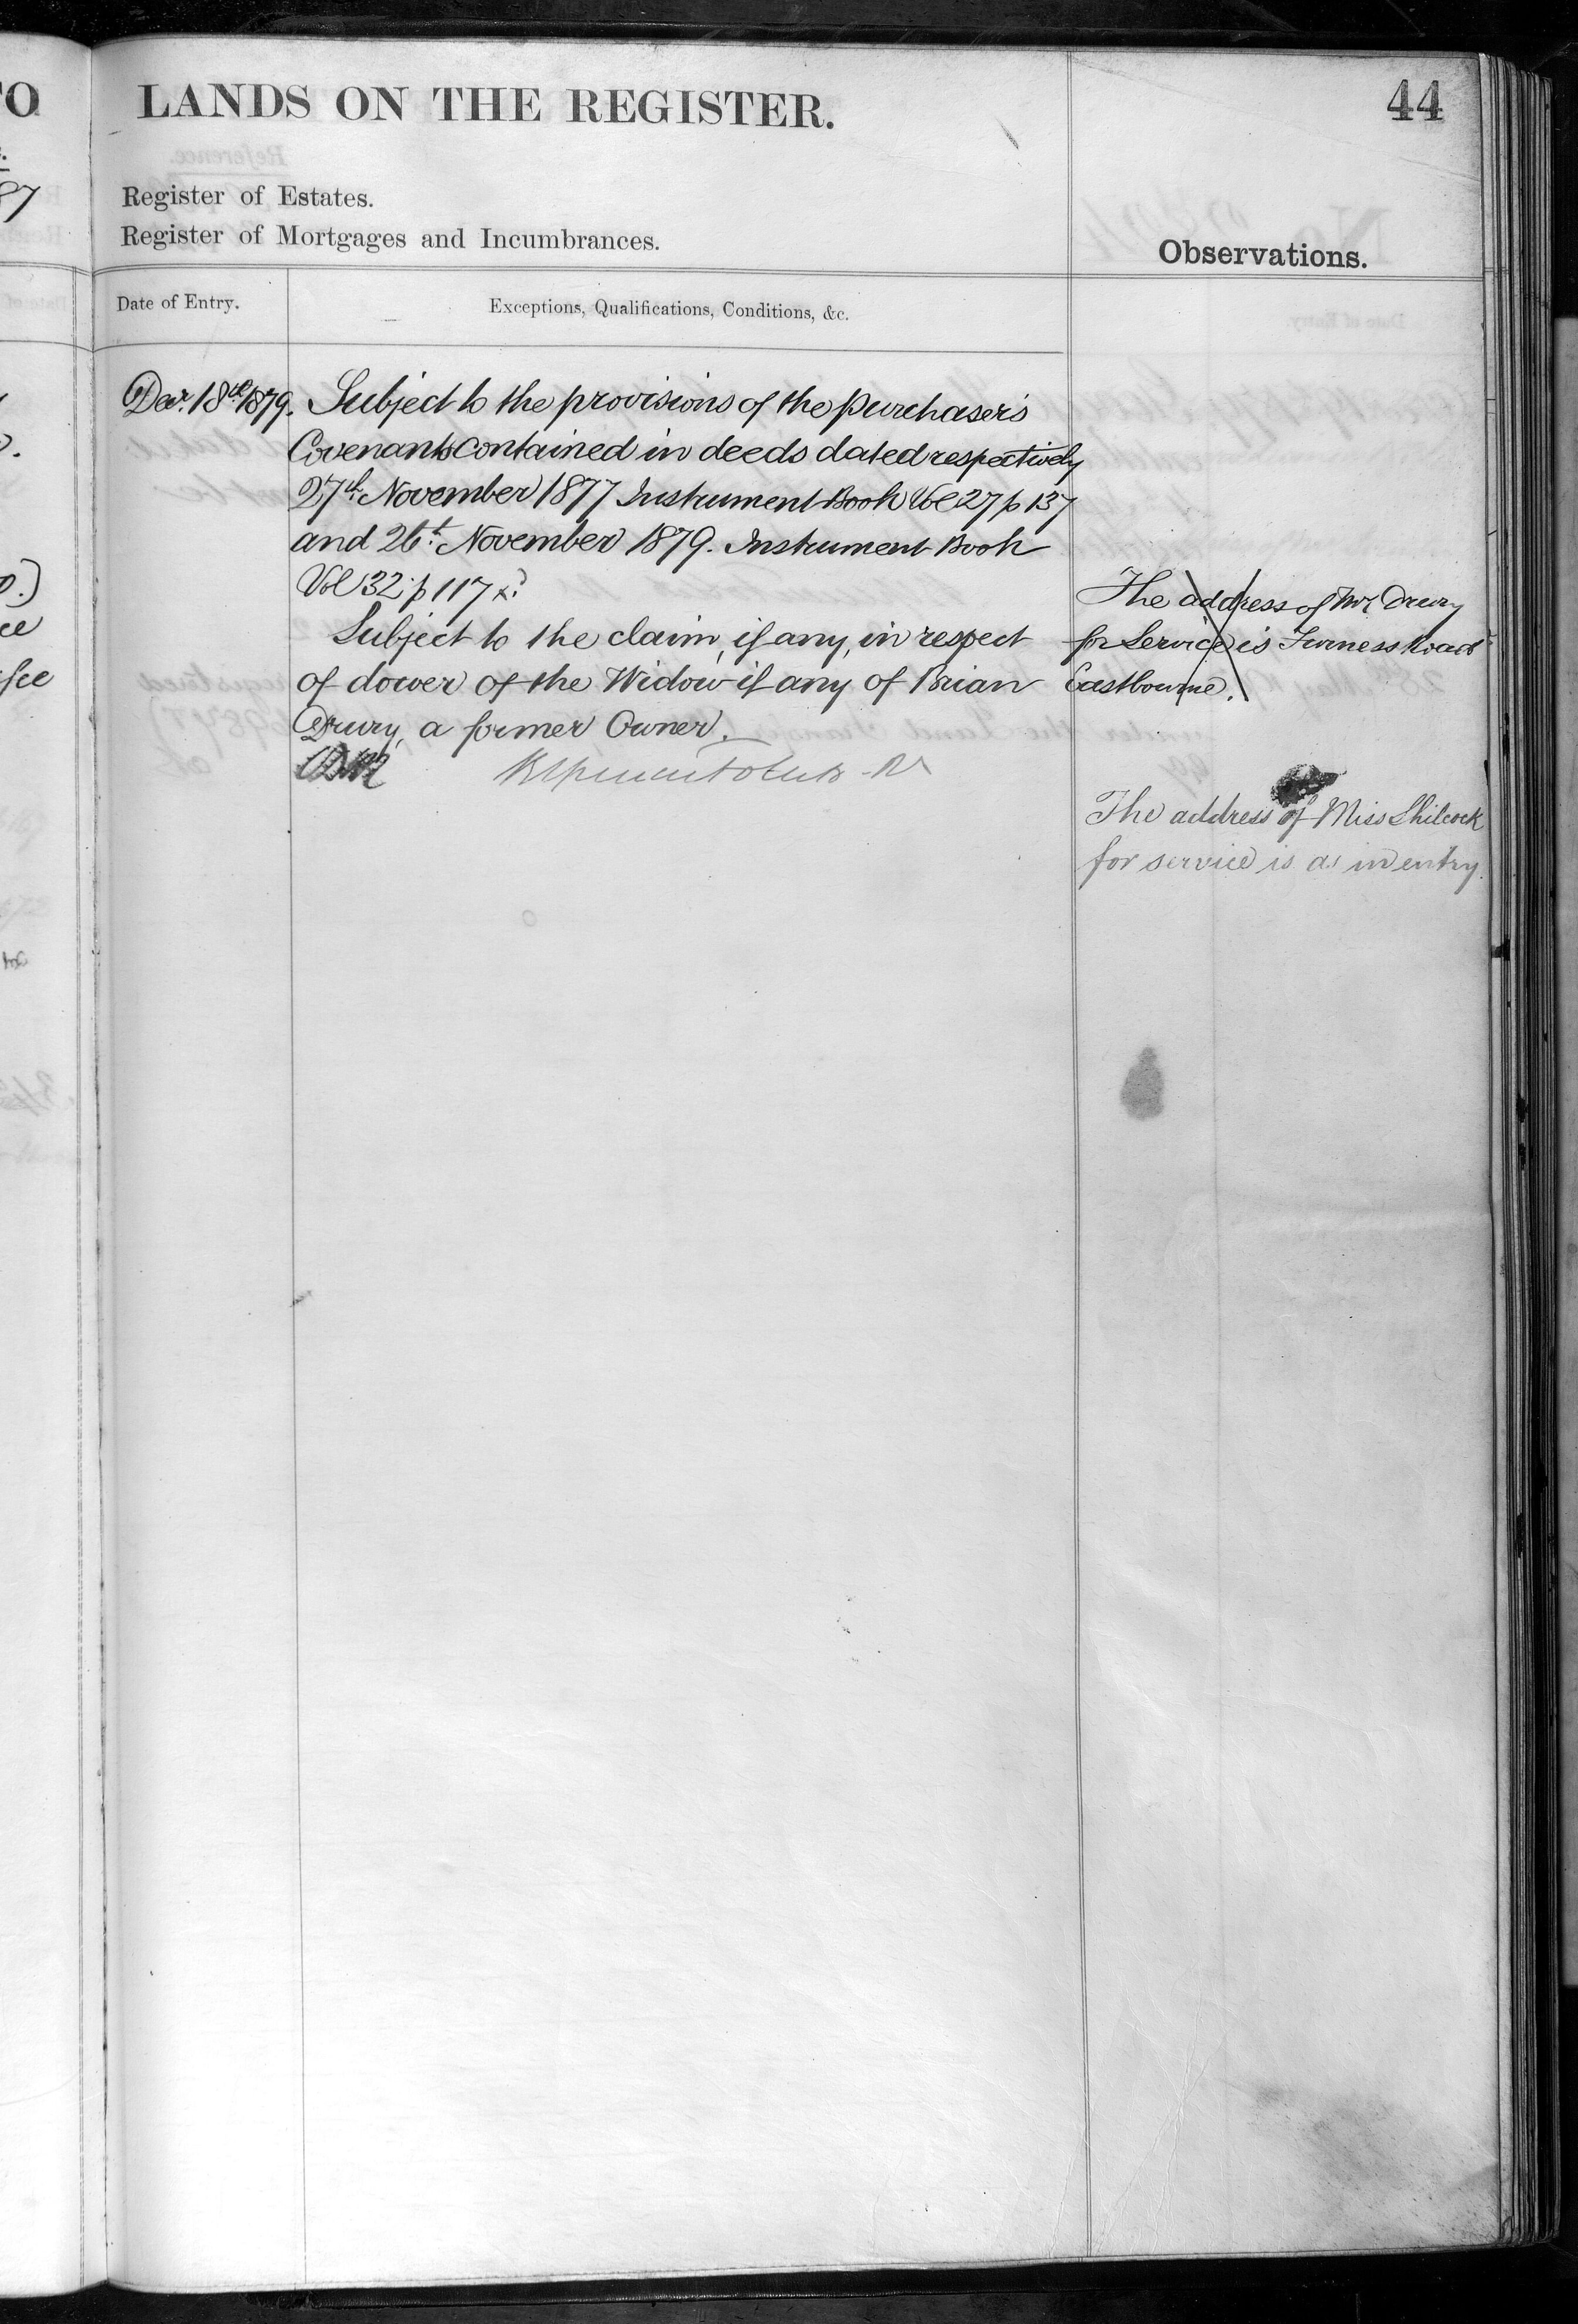 LANDS ON THE REGISTER.
44
Register of Estates.
Register of Mortgages and Incumbrances.
Observations.
Date of Entry.
Exceptions, Qualifications, Conditions, &c.
Decr. 18th 1879.
Subject to the provisions of the purchaser's
Covenants contained in deeds dated respectively
27th November 1877 Instrument Book Vol 27 p 137
and 26th November 1879. Instrument Book
Vol 32 p 117
Subject to the claim, if any, in respect
of dower of the Widow if any of Brian
Drury, a former Owner.
The address of Mr Drury
for Service is Furness Road
Eastbourne.
The address of Miss Shilcock
for service is as in entry.